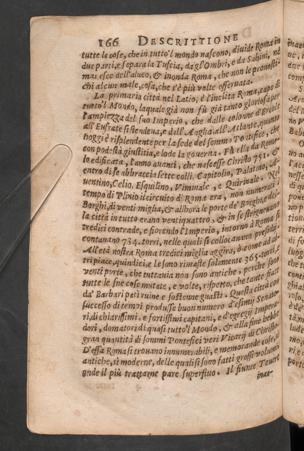 166 DESCRITTIONE
tutte le cose, che in tutto'l mondo nascono, diuide Roma in
due parti, e separa la Tuscia, da gl'Ombri, e da Sabini, nè
mai esce dell'alueo, & inonda Roma, che non le pronostichi
alcun male, cosa, che s'è più volte osseruata.
La primaria città nel Latio, è l'inclita Roma, capo di
tutto'l Mondo, laqual già non fù già tanto gloriosa per
l'ampiezza del suo Imperio, che dalle colonne d'
all'Eufrate si stendeua, e dall' all'Atlante, quanto
hoggi è risplendente per la sede del sommo Pontefice, che
con podestà, giustitia, e lode la gouerna. Fù ella da Romolo
edificata, l'anno auanti, che nascesse Christo 751. &
entro di se abbraccia sette colli. Capitolio, Palatino, Auentino,
Celio, Esquilino, Viminale, e Quirinale. Nel
tempo di Plinio il circuito di Roma era, non numerando i
Borghi, di venti miglia, & allhora le porte de' Borghi, e della
città in tutto erano ventiquattro, & in se stringeuano
tredici contrade, e fiorendo l'Imperio, intorno à Roma si
contauano 734. torri, nelle quali si collocauano
All'età nostra Roma tredici miglia aggira, & come ad altri
piace, quindici, e le sono rimaste solamente 365. torri, e
venti porte, che tuttauia non sono antiche, perche sono
tutte le sue cose mutate, e volte, rispetto, che tante fiate
da' Barbari patì ruine e fortunne guasti. Questa città con
successo di tempi produsse buon numero d'esimij Senatori,
di chiarissimi, e fortissimi capitani, e d'egregij Imperadori,
domatori di quasi tutto'l Mondo, & alla fine hebbe
gran quantità di sommi Pontefici veri Vicarij di Christo.
D'essa Roma si trouano innumerabili, e memorande cose, &
antiche, & moderne, delle quali si sono fatti grossi volumi
onde il più trattarne pare superfluo. Il fiume Teuere